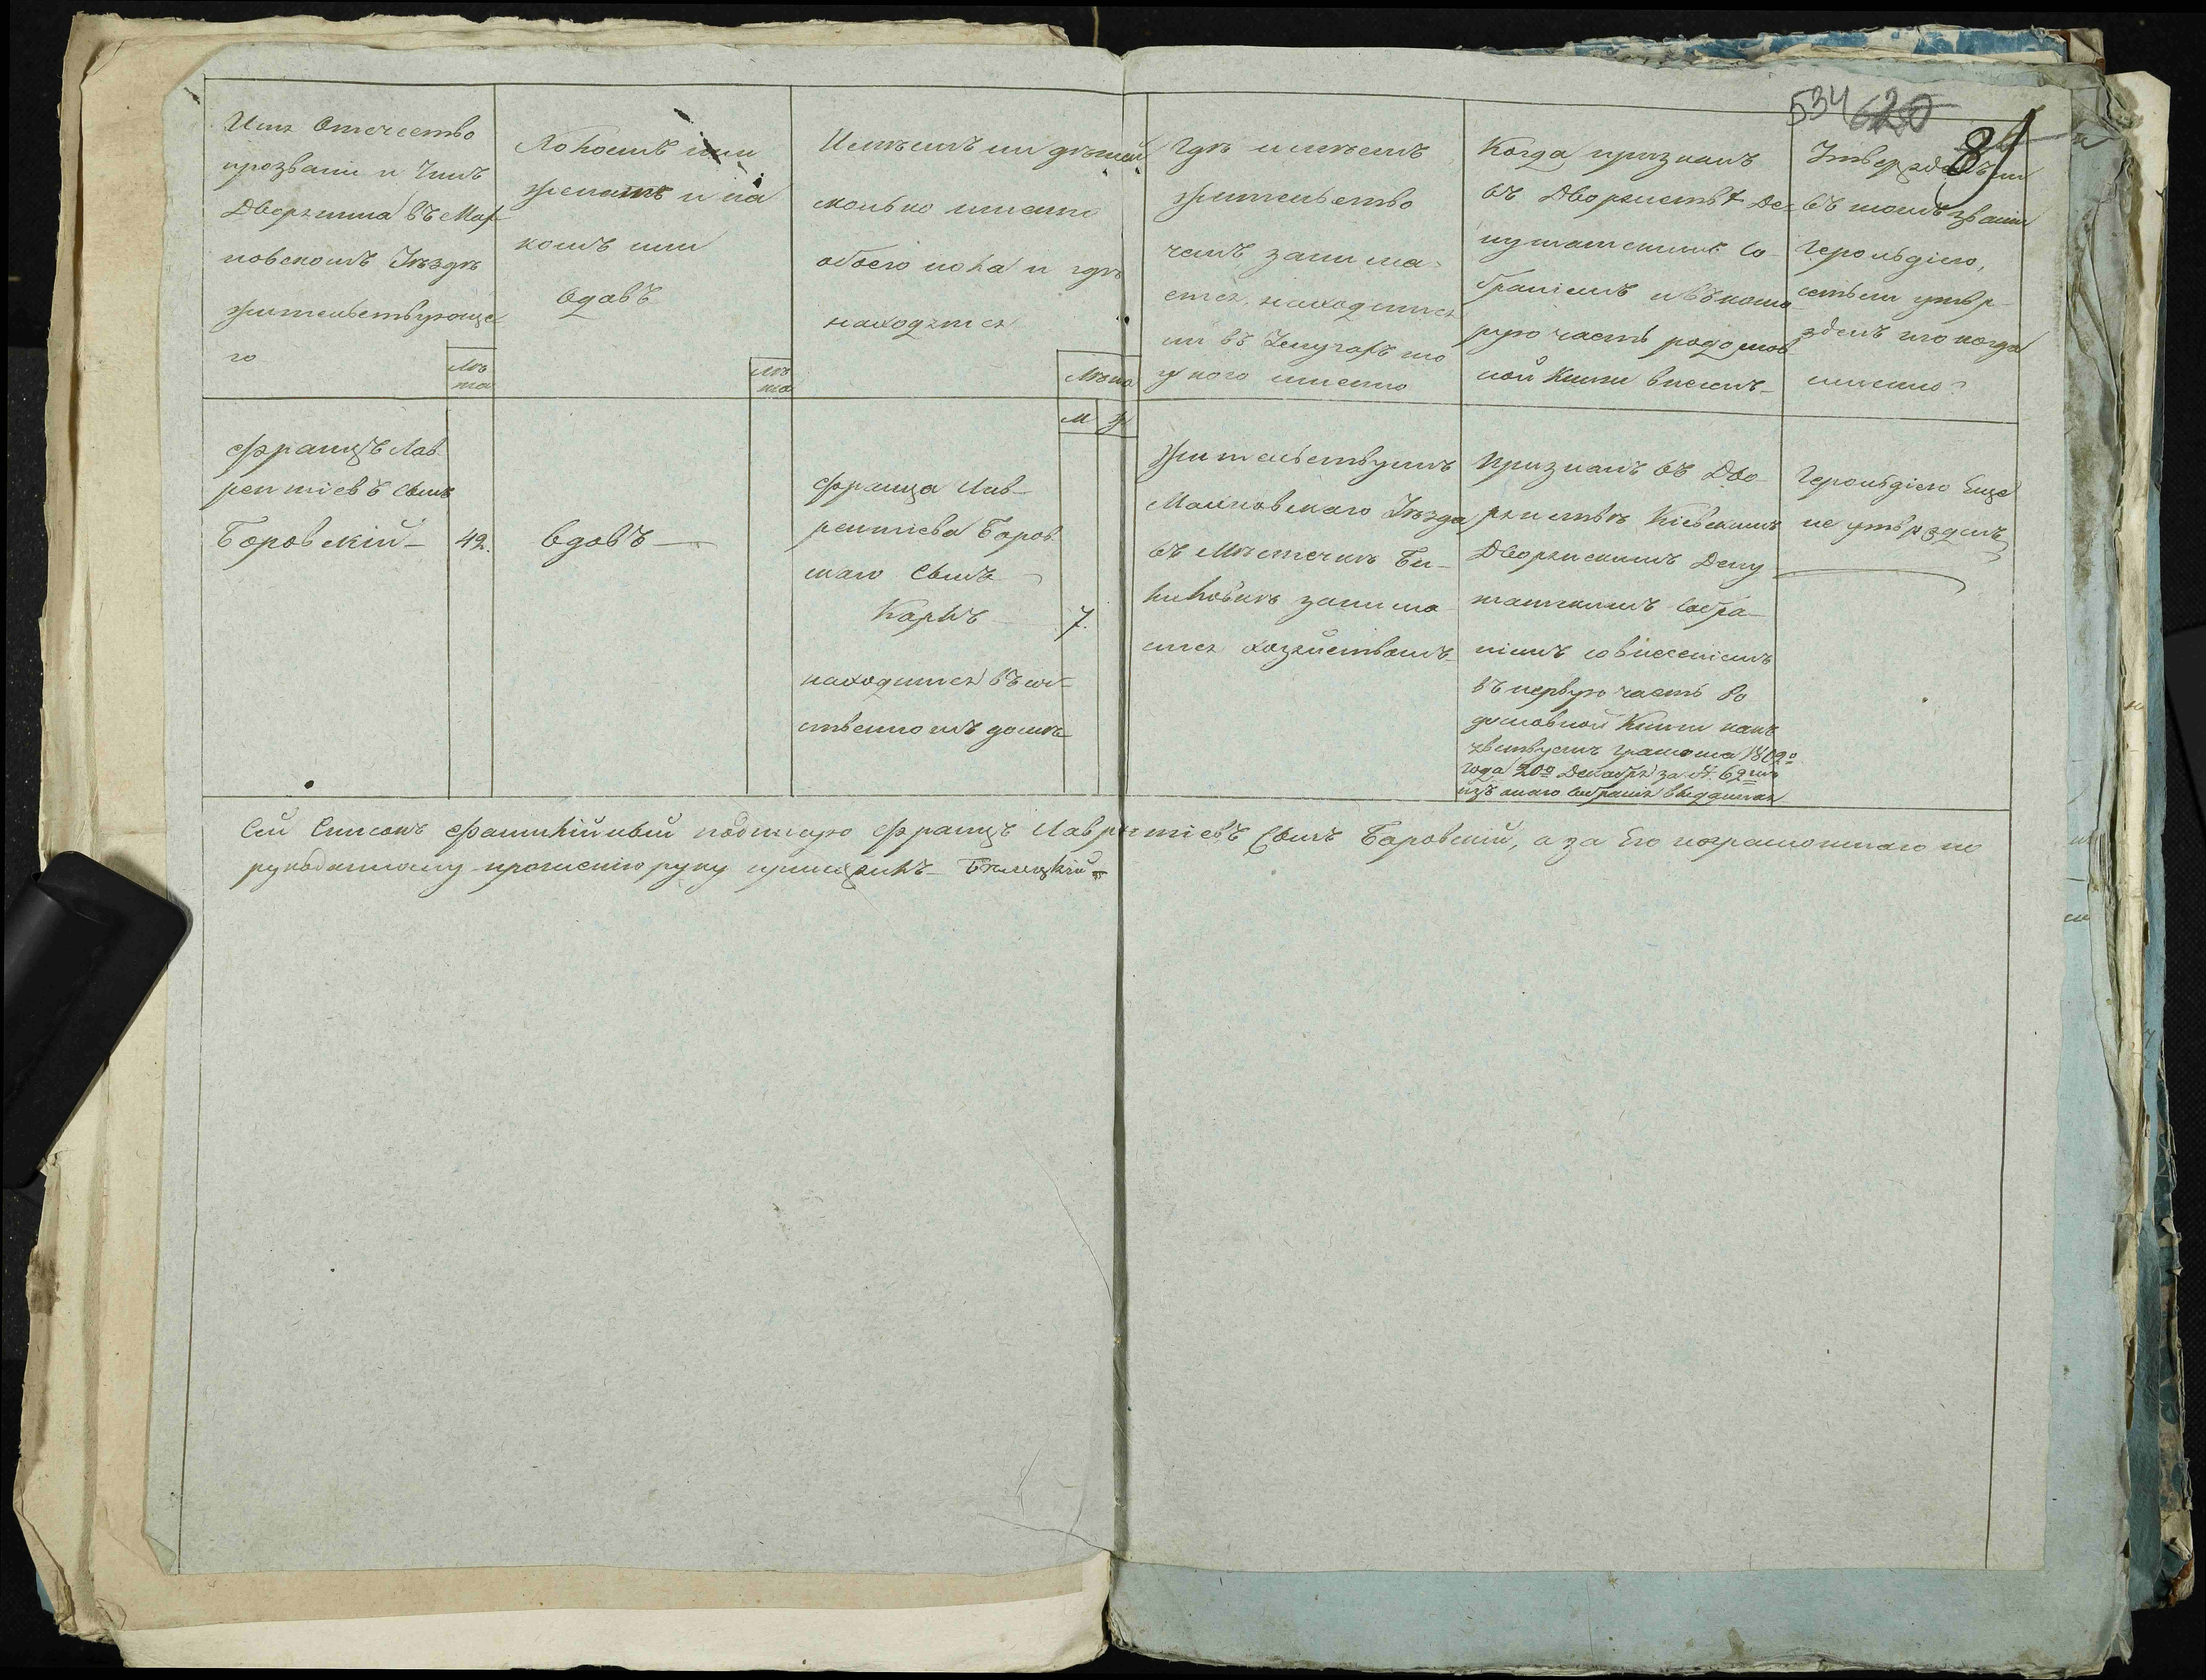 534 620
81
Имя Отечество
прозваніи и Чинъ
Дворянина въ Мах
новскомъ Уѣздѣ
жительствующа
го
Лѣ
та
Холостъ или
женатъ и на
комъ или
вдовъ
Лѣ
та
Имѣетъ ли дѣтей
сколько имянно
обоего пола и гдѣ
находятся
Лѣта
М Ж
Гдѣ имѣетъ
жительство
чемъ занима-
ется, находится
ли въ Чиншахъ то
у кого имянно
Когда признанъ
въ Дворянствѣ Де-
путатскимъ Со-
браніемъ и въ кото
рую часть родослов
ной Книги внесенъ-
Утвержденъ ли
въ томъ званіи
Герольдіею,
естьли утвер-
жденъ то когда
имянно?
Францъ Лав
рентіевъ Сынъ
Боровскій- 42.
вдовъ
Франца Лав-
рентіева Боров
скаго Сынъ
Карлъ 7.
находится въ соб
ственномъ домѣ
Жительствуетъ
Махновскаго Уѣзда
въ Мѣстечкѣ Би-
лиловкѣ занима
ется хозяйствомъ-
Признанъ въ Дво
рянствѣ Кіевскимъ
Дворянскимъ Депу
татскимъ Собра-
ніемъ со внесеніемъ
въ первую часть Ро
дословной Книги какъ
явствуетъ грамота 1802го
года 20го Декабря за № 62мъ
изъ онаго Собранія выданная
Герольдіею Еще
не утвержденъ
Сей Списокъ Фамилійный подписую Францъ Лаврентіевъ Сынъ Боровскій, а за Его неграмотнаго по
рукоданному прошенію руку приложилъ- Бѣлецкій-